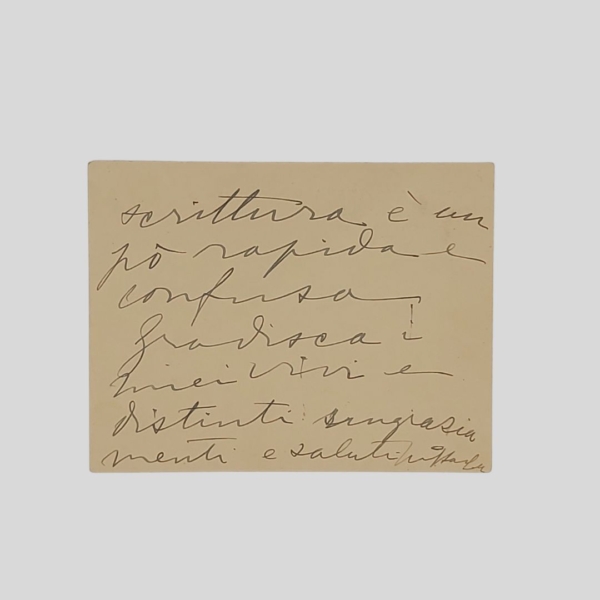 scrittura è un
pò rapida e
confusa
Gradisca i
miei vivi e
distinti ringrazia
menti e saluti